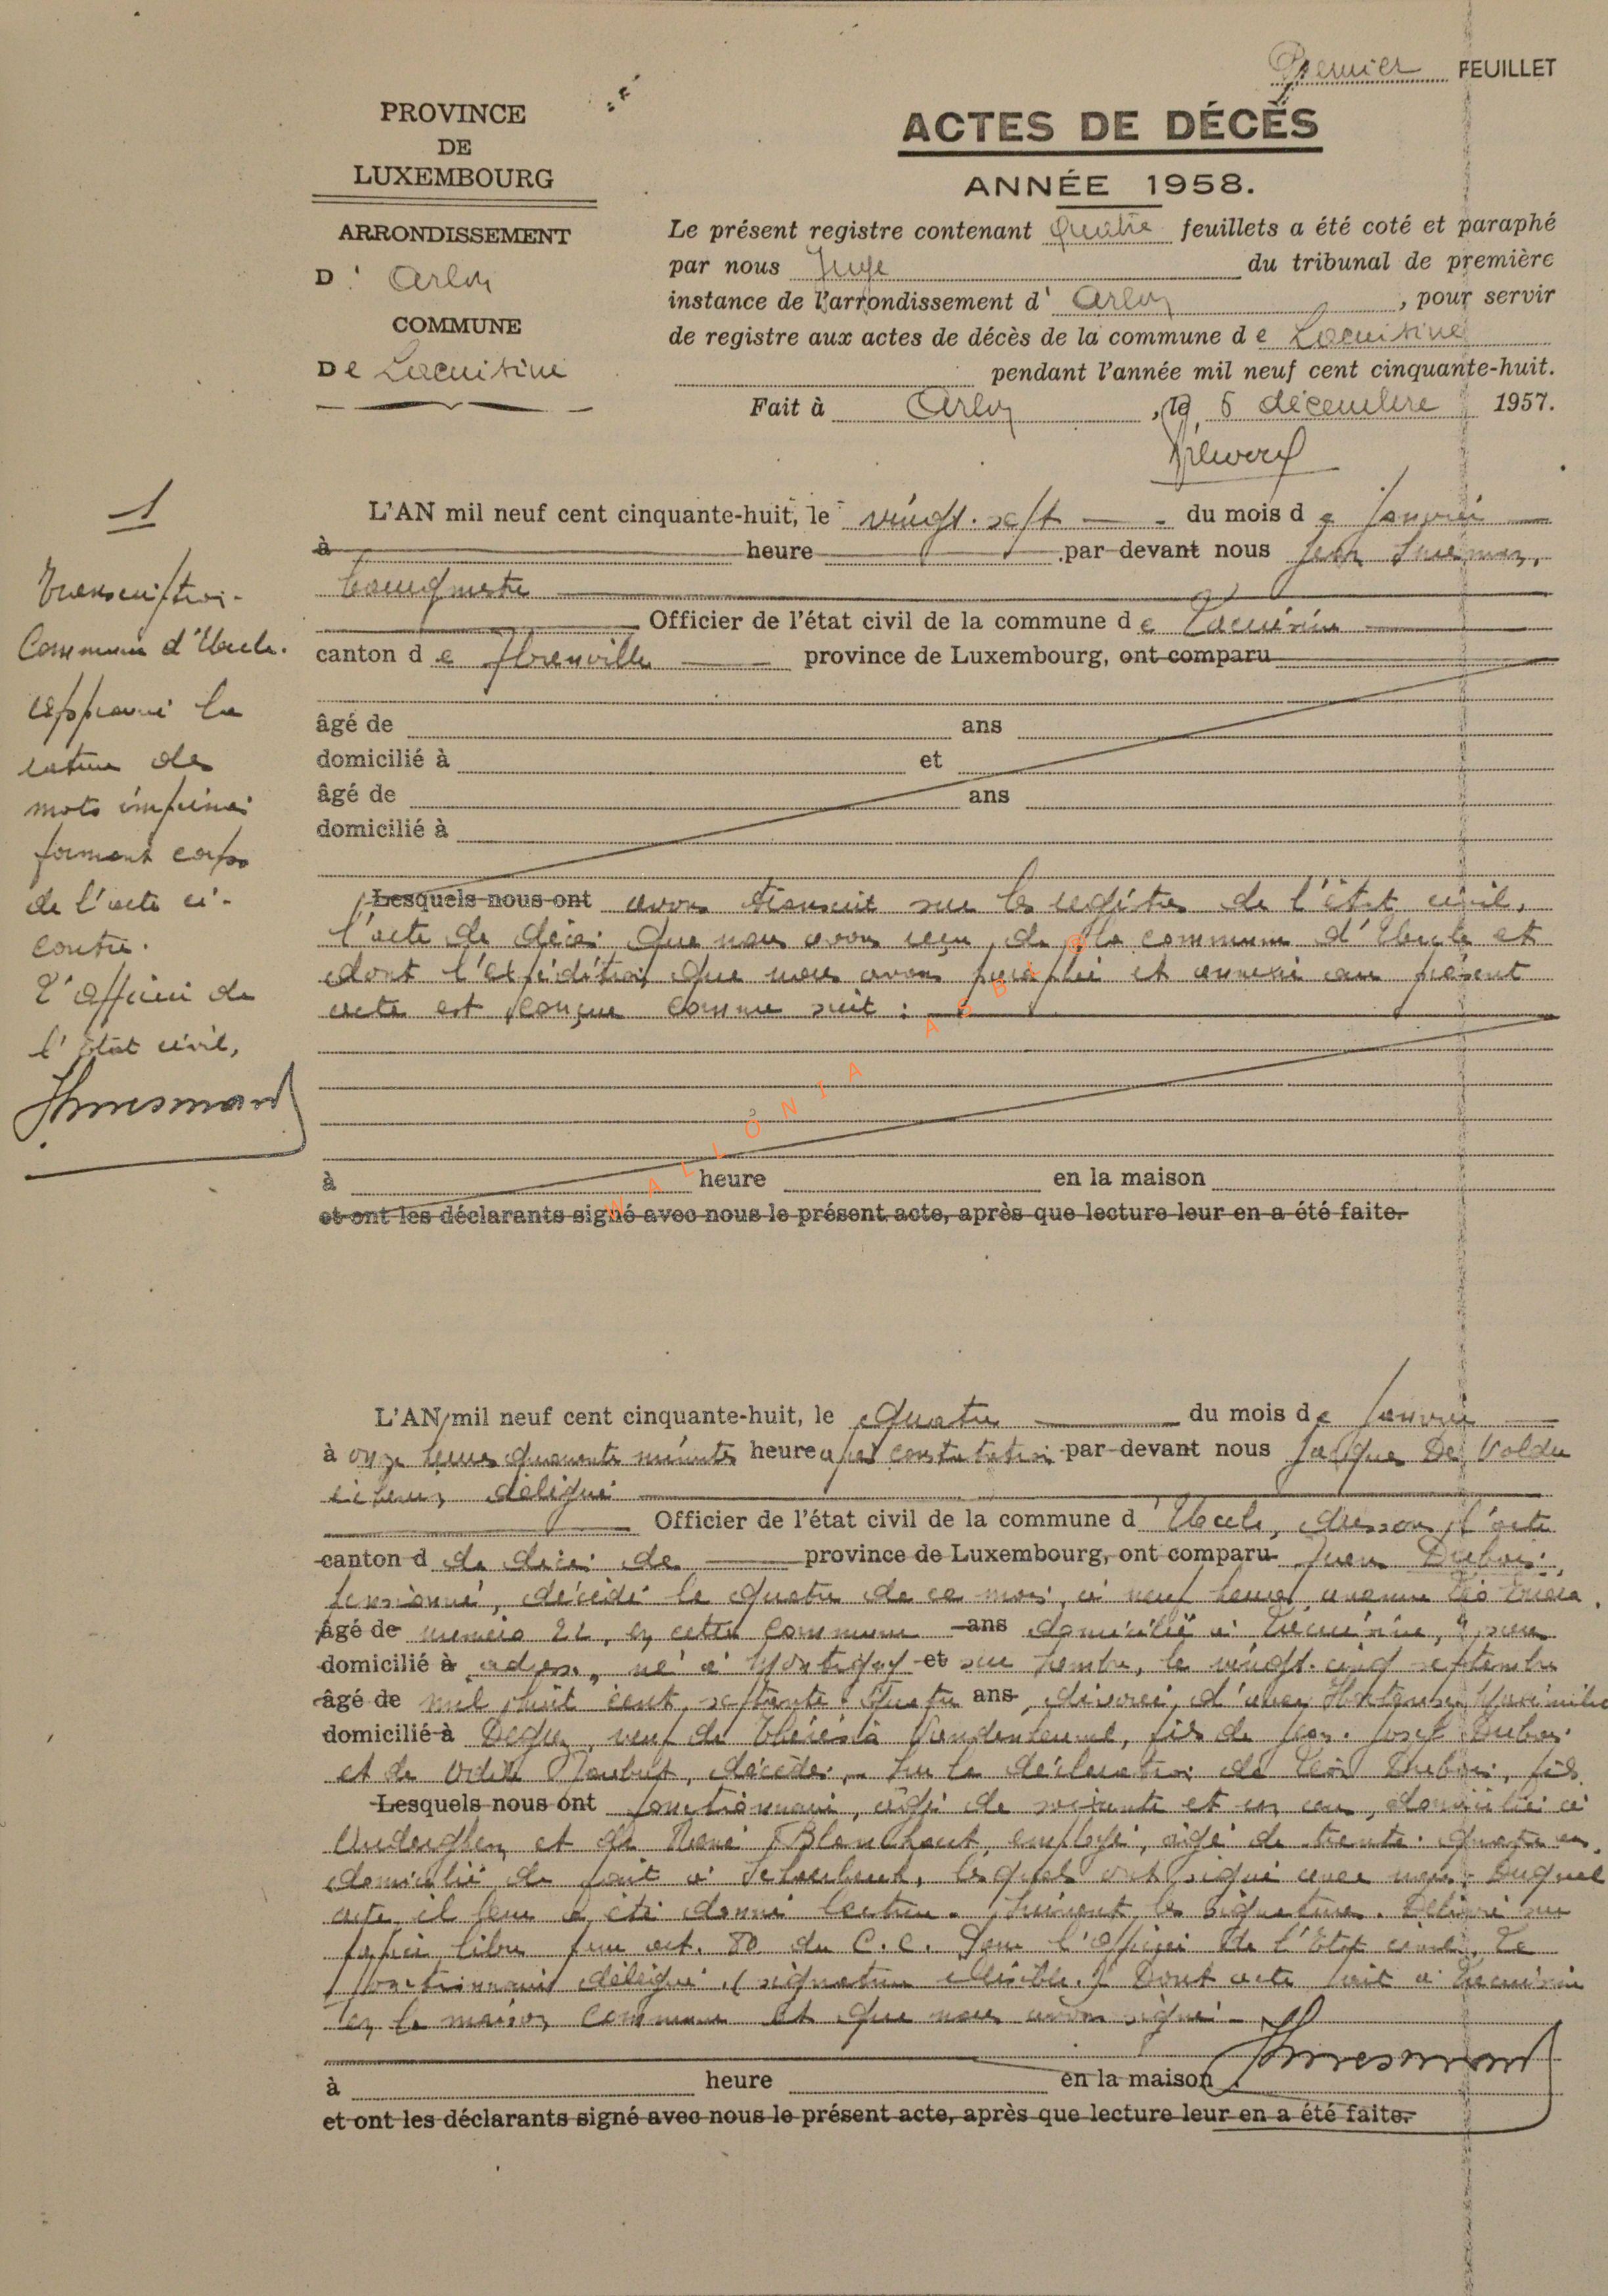 Premier FEUILLET
PROVINCE
DE
LUXEMBOURG
ARRONDISSEMENT
D' Arlon
COMMUNE
De Lacuisine
ACTES DE DÉCÈS
ANNÉE 1958.
Le présent registre contenant quatre feuillets a été coté et paraphé
par nous Juge du tribunal de première
instance de l'arrondissement d' Arlon, pour servir
de registre aux actes de décès de la commune de Lacuisine
pendant l'année mil neuf cent cinquante-huit.
Fait à Arlon, le 5 décembre 1957.
1
Transcription.
Commune d'Uccle.
Approuvé la
rature des
mots imprimés
formant corps
de l'acte ci-
contre.
L'officier de
l'état civil,
L'AN mil neuf cent cinquante-huit, le vingt-sept du mois de janvier
à heure par devant nous Jean
bourgmestre
Officier de l'état civil de la commune de Lacuisine
canton de Florenville province de Luxembourg, ont comparu
âgé de ans
domicilié à et
âgé de ans
domicilié à
Lesquels nous ont avons transcrit sur les registres de l'état civil,
l'acte de décès que nous avons reçu de la commune d'Uccle et
dont l'expédition que nous avons paraphé et annexé au présent
acte est conçue comme suit :
WALLONIA ASBL
à heure en la maison
et ont les déclarants signé avec nous le présent acte, après que lecture leur en a été faite.
L'AN mil neuf cent cinquante-huit, le quatre du mois de janvier
à onze heures quarante minutes heure après constatation par devant nous Jacques De
échevin délégué
Officier de l'état civil de la commune d'Uccle, dressons l'acte
canton d de décès de province de Luxembourg, ont comparu Dubois,
pensionné, décédé le quatre de ce mois, à neuf heures, avenue
âgé de numéro 22, en cette commune ans domicilié à Lacuisine,
domicilié à né à Montigny et sur Sambre, le vingt-cinq septembre
âgé de mil huit cent septante-quatre ans, divorcé d'avec Hortense
domicilié à veuf de Thérésia fils de Jean-Joseph Dubois
et de décédés, Sur la déclaration de Léon Dubois, fils
Lesquels nous ont fonctionnaire, âgé de soixante et un ans, domicilié à
Auderghem et de René employé, âgé de trente-quatre ans,
domicilié de fait à lesquels ont signé avec nous. Duquel
acte il leur a été donné lecture. Suivent les signatures. Délivré sur
papier libre art. 80 du C.C. Pour l'officier de l'Etat civil, Le
fonctionnaire délégué, (signature illisible.) Dont acte fait à Lacuisine
en la maison commune et que nous avons signé.
à heure en la maison
et ont les déclarants signé avec nous le présent acte, après que lecture leur en a été faite.